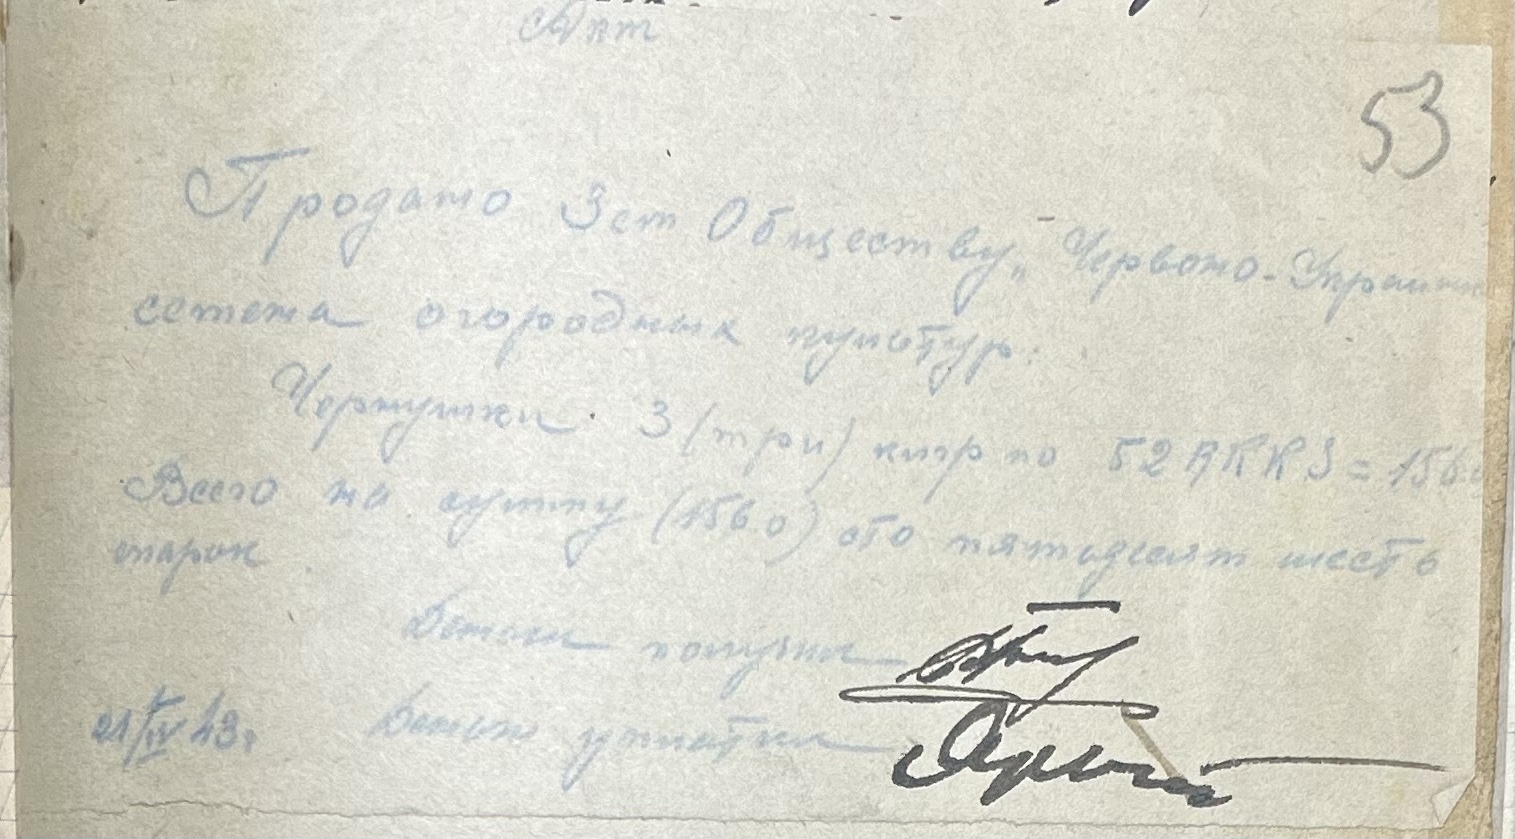 Акт
53
Продано Зем Обществу „Червоно-Украин
семена огородных культур:
Чернушки 3 (три) кигр по 52 RKKS = 156.0
Всего на сумму (156.0) сто пятьдесят шесть
марок
Деньги получил
21/IV 43 г. Деньги уплатил